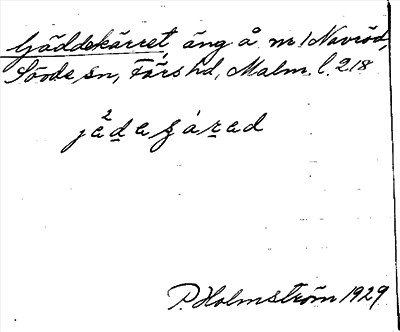 Gäddekärret, äng å nr 1 Navröd,
Sövde sn, Färs hd, Malm. l. 218
P. Holmström 1929